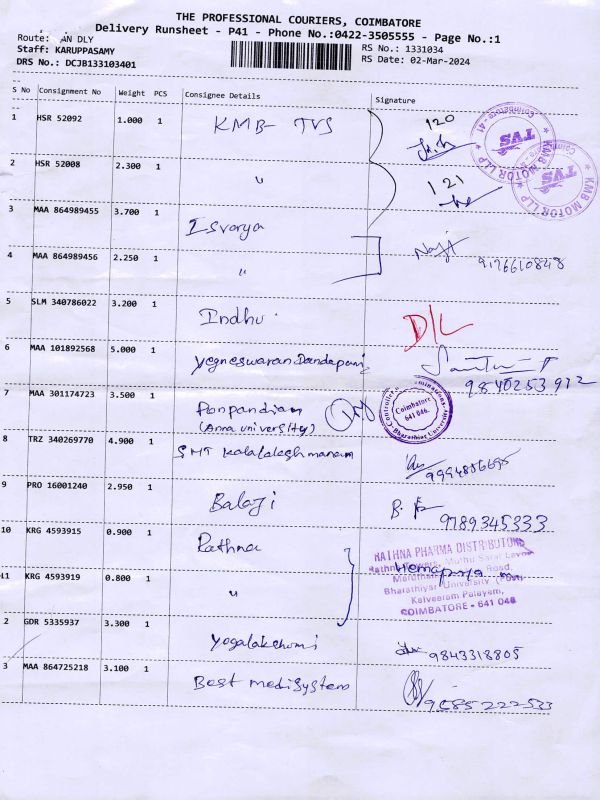 THE PROFESSIONAL COURIERS, COIMBATORE
Delivery Runsheet - P41 - Phone No.:0422-3505555 - Page No.:1
Route: AN DLY
RS No.: 1331034
Staff: KARUPPASAMY
RS Date: 02-Mar-2024
DRS No.: DCJB133103401
S No Consignment No Weight PCS Consignee Details Signature
1 HSR 52092 1.000 1 KMB- TVS 120
2 HSR 52008 2.300 1 " 121
KMB MOTOR LLP TVS Coimbatore-41
KMB MOTOR LLP TVS
3 MAA 864989455 3.700 1 Isvarya
4 MAA 864989456 2.250 1 " 9176610848
5 SLM 340786022 3.200 1 Indhu D/L
6 MAA 101892568 5.000 1 Yegneswaran Dandapani 9840253912
7 MAA 301174723 3.500 1 Ponpandian
(Anna university)
Controller Examinations Coimbatore 641 046. Bharathiar University
8 TRZ 340269770 4.900 1 SMT Kalalakshmanan 9994856695
9 PRO 16001240 2.950 1 Balaji 9789345333
10 KRG 4593915 0.900 1 Rathna
11 KRG 4593919 0.800 1 " Hemapriya
RATHNA PHARMA DISTRIBUTORS
Bharathiyar University (Post)
Kalveeram Palayam,
COIMBATORE - 641 046
2 GDR 5335937 3.300 1 Yogalakshmi 9843318805
3 MAA 864725218 3.100 1 Best medisystem 9585222533